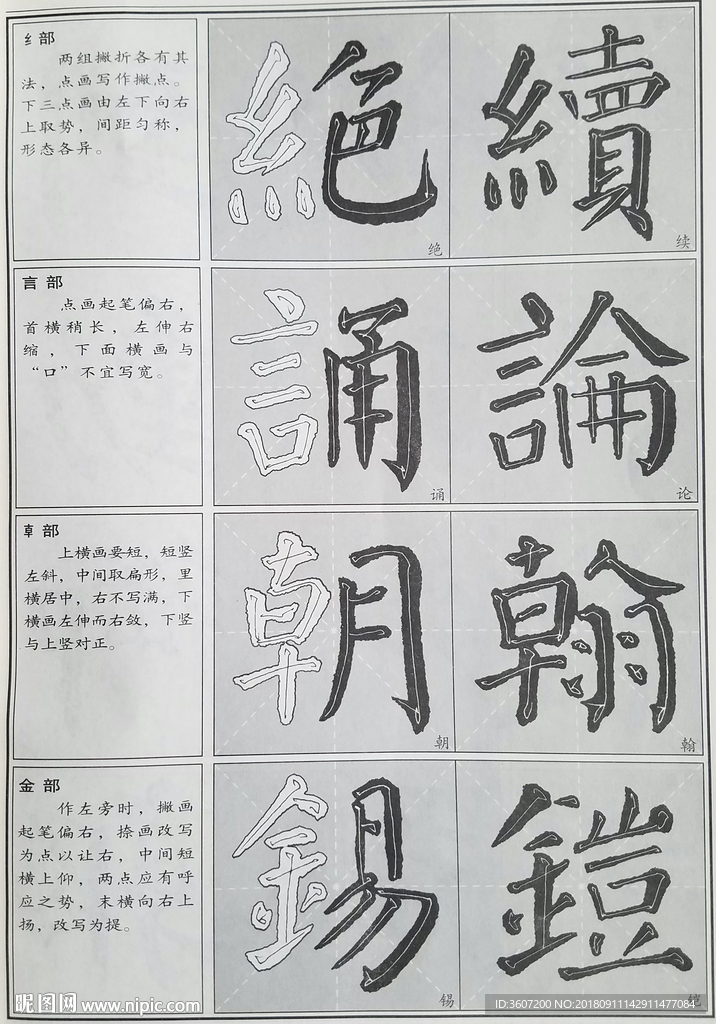 纟部
两组撇折各有其
法，点画写作撇点。
下三点画由左下向右
上取势，间距匀称，
形态各异。
絕
绝
續
续
言部
点画起笔偏右，
首横稍长，左伸右
缩，下面横画与
“口”不宜写宽。
誦
诵
論
论
部
上横画要短，短竖
左斜，中间取扁形，里
横居中，右不写满，下
横画左伸而右敛，下竖
与上竖对正。
朝
朝
翰
翰
金部
作左旁时，撇画
起笔偏右，捺画改写
为点以让右，中间短
横上仰，两点应有呼
应之势，末横向右上
扬，改写为提。
錫
锡
鎧
铠
昵图网 www.nipic.com
ID:3607200 NO:20180911142911477084